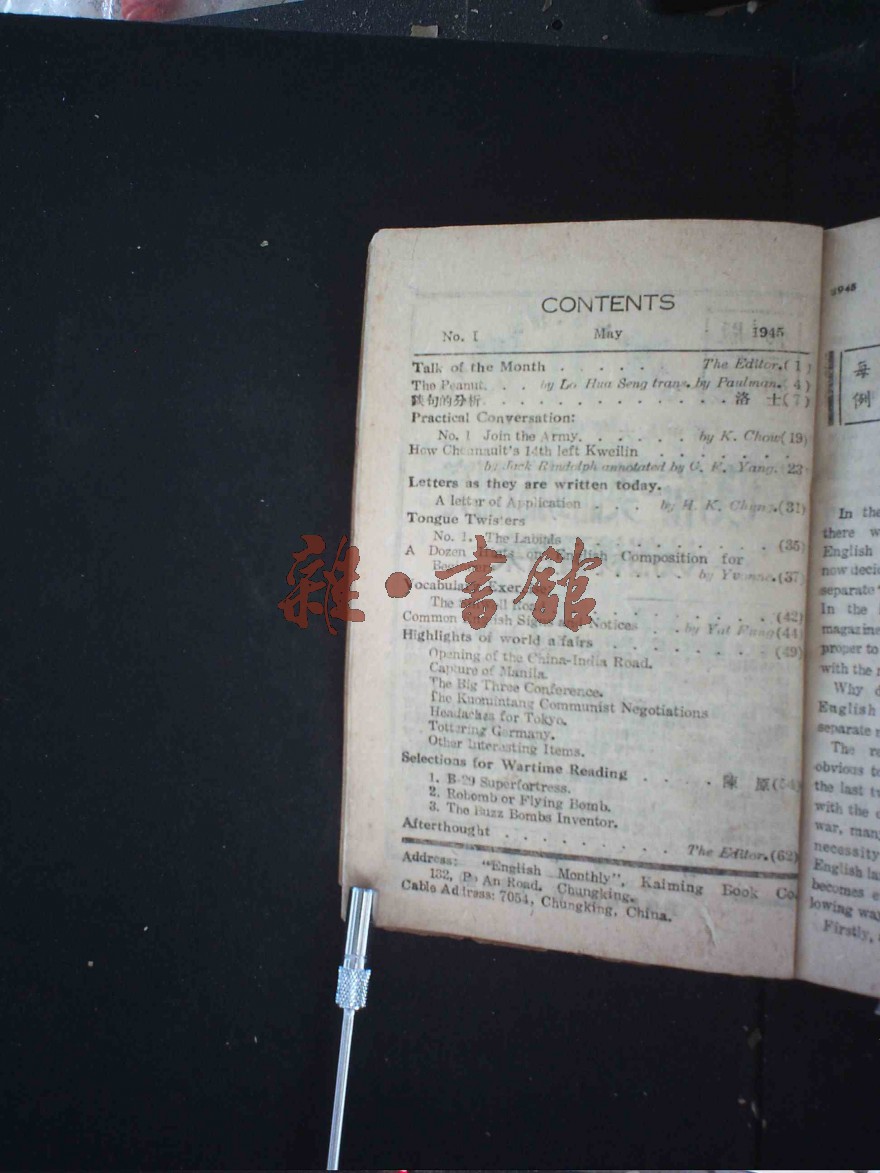 CONTENTS
No. 1 May 1945
Talk of the Month . . . . . The Editor.( 1 )
The Peanut. . . by Lo Hua Seng trans. by Paulman.( 4 )
的分析. . . . . . . . . . . . . 洛 士( 7 )
Practical Conversation:
No. 1 Join the Army. . . . . . by K. Chow(19)
How Chennault's 14th left Kweilin . . . . . . .
by Jack Randolph annotated by C. F. Yang. 23
Letters as they are written today.
A letter of Application . . . by H. K. (31)
Tongue Twisters
No. 1. The Labials . . . . . . . . . (35)
A Dozen Hints on English Composition for
by Yvonne.(37)
Vocabulary Exercise
The (42)
Common English Signs and Notices . . by Yat Fung(44)
Highlights of world affairs . . . . . . . . (49)
Opening of the China-India Road.
Capture of Manila.
The Big Three Conference.
The Kuomintang Communist Negotiations
Headaches for Tokyo.
Tottering Germany.
Other Interesting Items.
Selections for Wartime Reading . . . . . 陳 原(54)
1. B-29 Superfortress.
2. Robomb or Flying Bomb.
3. The Buzz Bombs Inventor.
Afterthought . . . . . . . . . The Editor.(62)
Address: "English Monthly", Kaiming Book Co.
132, Po An Road, Chungking.
Cable Address: 7054, Chungking, China.
雜·書館
1945
每
例
In the
there w
English
now deci
separate
In the
magazine
proper to
with the
Why d
English
separate
The re
obvious to
the last tw
with the
war, many
necessity
English la
becomes e
lowing way
Firstly,